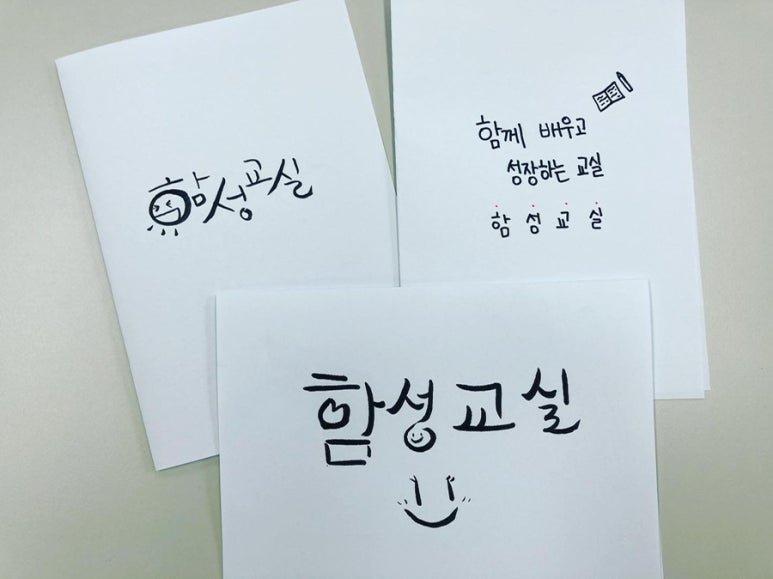 함성교실
함께 배우고
성장하는 교실
함성교실
함성교실